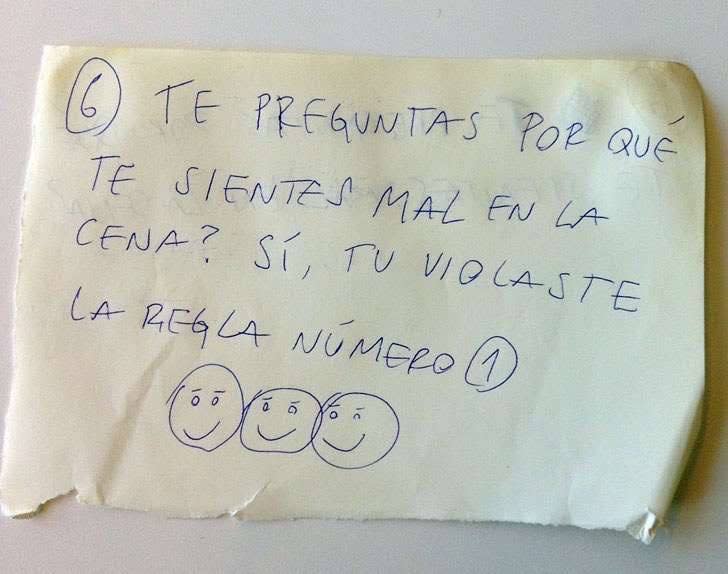 6 TE PREGUNTAS POR QUÉ
TE SIENTES MAL EN LA
CENA? SÍ, TU VIOLASTE
LA REGLA NÚMERO 1